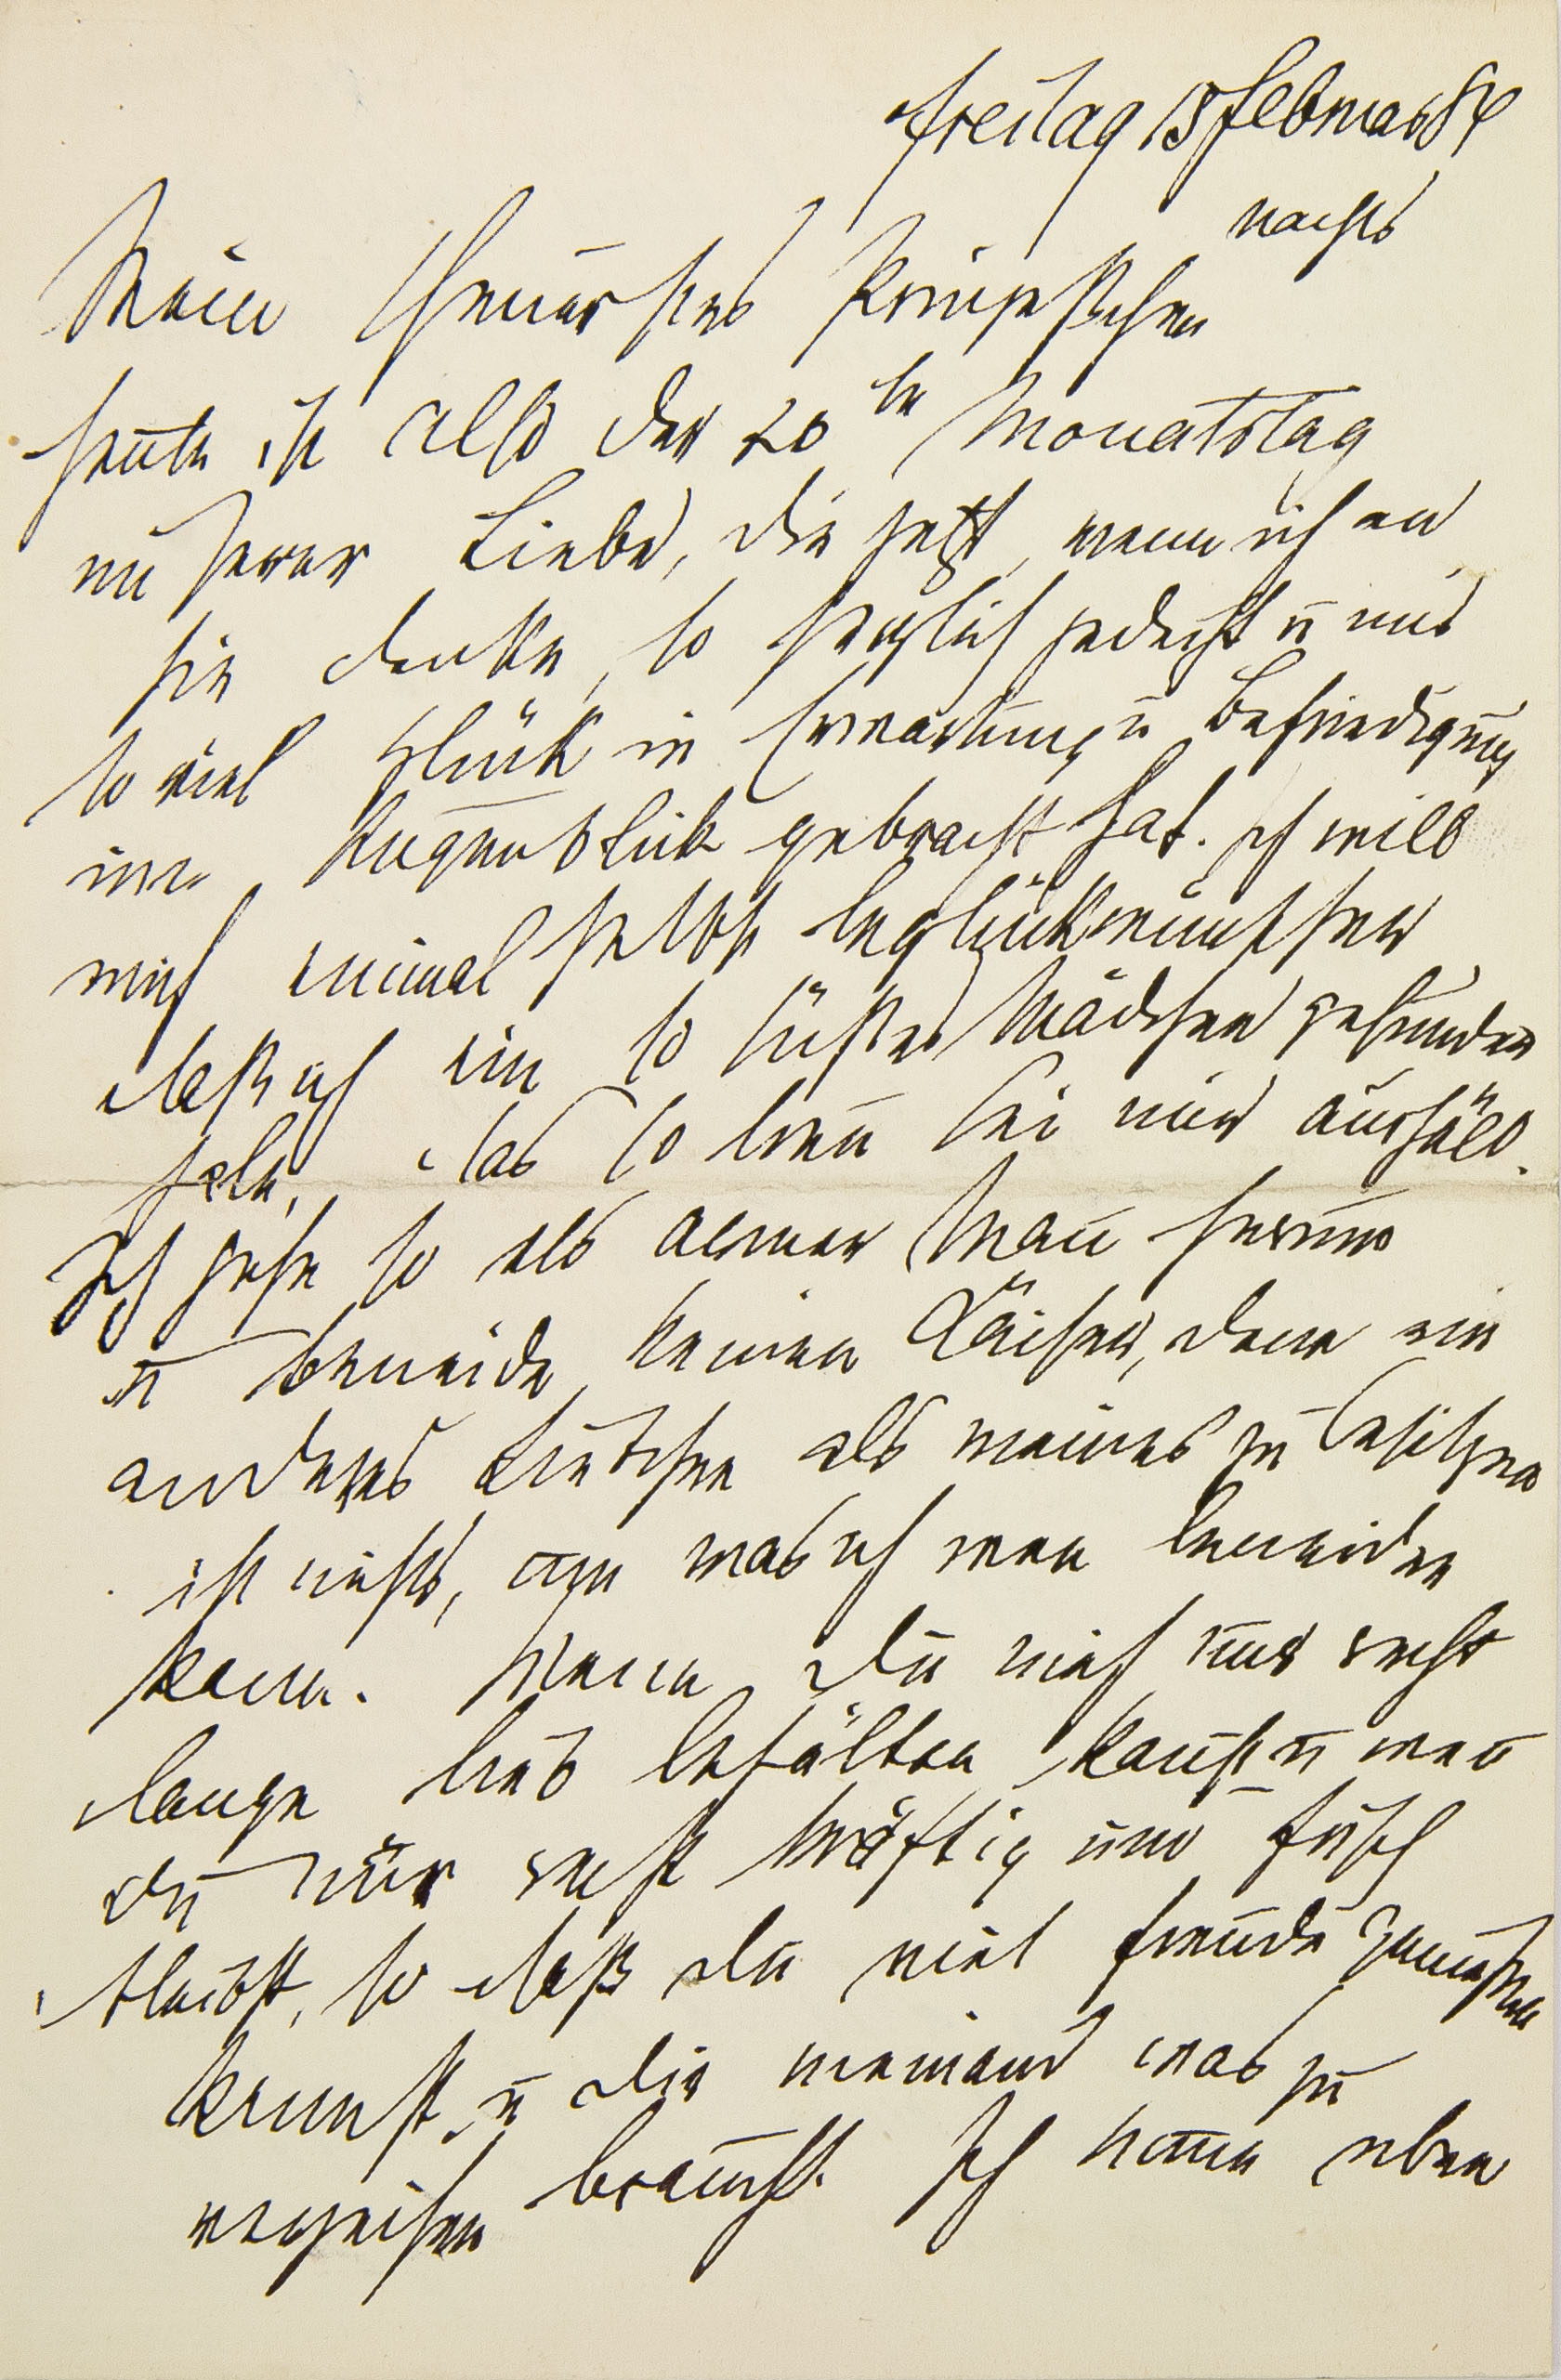 Freitag 15 Februar 84
nachts
Mein theuerstes Prinzeßchen
heute ist also der 20te Monatstag
unserer Liebe, die jetzt, wenn ich an
sie denke, so herzlich gedeiht u mir
so viel Glück in Erwartung u Befriedigung
im Augenblick gebracht hat. Ich will
mich einmal selbst beglückwünschen
daß ich ein so süßes Mädchen gefunden
habe, das so treu bei mir aushält.
Ich gehe so als armer Mann herum
u beneide keinen Kaiser, denn ein
anderes Liebchen als meines zu besitzen
ist nichts, um was ich wen beneiden
kann. Wenn Du mich nur recht
lange lieb behalten kannst u wenn
du nur recht kräftig und frisch
bleibst, so daß du viel Freude genießen
kannst u dir niemand was zu
verzeihen brauchst. Ich kann eben